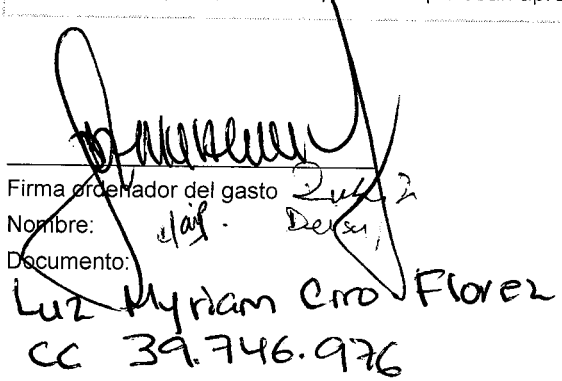 Firma ordenador del gasto
Nombre:
Documento:
Luz Myriam Ciro Florez
CC 39.746.976